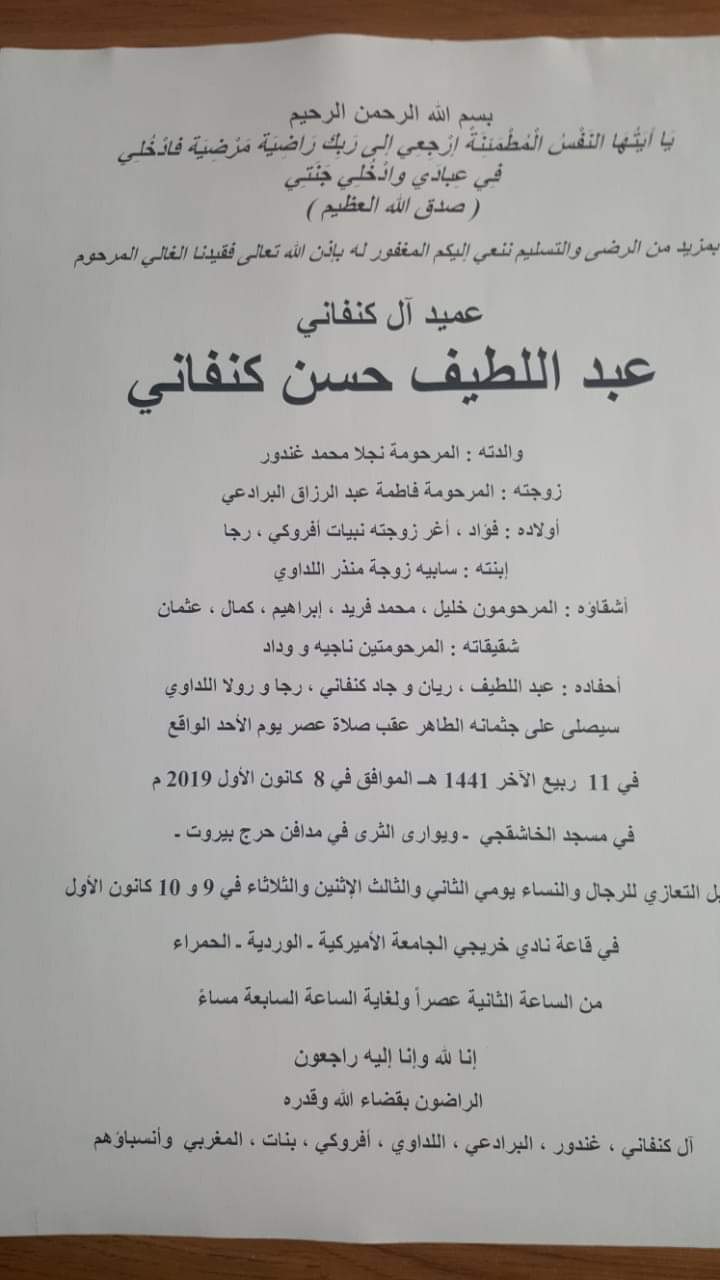 بسم الله الرحمن الرحيم
يَا أَيَتُهَا النَفْسُ الْمُطْمَئِنَةُ اِرْجِعِي إِلى رَبِكِ رَاضِيَة مَرْضِيَة فادْخُلِي
فِي عِبادَي وادْخُلِي جَنَتِي
( صدق الله العظيم )
بمزيد من الرضى والتسليم ننعي إليكم المغفور له بإذن الله تعالى فقيدنا الغالي المرحوم
عميد آل كنفاني
عبد اللطيف حسن كنفاني
والدته : المرحومة نجلا محمد غندور
زوجته : المرحومة فاطمة عبد الرزاق البرادعي
أولاده : فؤاد ، أغر زوجته نبيات أفروكي ، رجا
إبنته : سابيه زوجة منذر اللداوي
أشقاؤه : المرحومون خليل ، محمد فريد ، إبراهيم ، كمال ، عثمان
شقيقاته : المرحومتين ناجيه و وداد
أحفاده : عبد اللطيف ، ريان و جاد كنفاني ، رجا و رولا اللداوي
سيصلى على جثمانه الطاهر عقب صلاة عصر يوم الأحد الواقع
في 11 ربيع الآخر 1441 هـ الموافق في 8 كانون الأول 2019 م
في مسجد الخاشقجي - ويوارى الثرى في مدافن حرج بيروت -
التعازي للرجال والنساء يومي الثاني والثالث الإثنين والثلاثاء في 9 و 10 كانون الأول
في قاعة نادي خريجي الجامعة الأميركية - الوردية - الحمراء
من الساعة الثانية عصراً ولغاية الساعة السابعة مساءً
إنا لله وإنا إليه راجعون
الراضون بقضاء الله وقدره
آل كنفاني ، غندور ، البرادعي ، اللداوي ، أفروكي ، بنات ، المغربي وأنسباؤهم